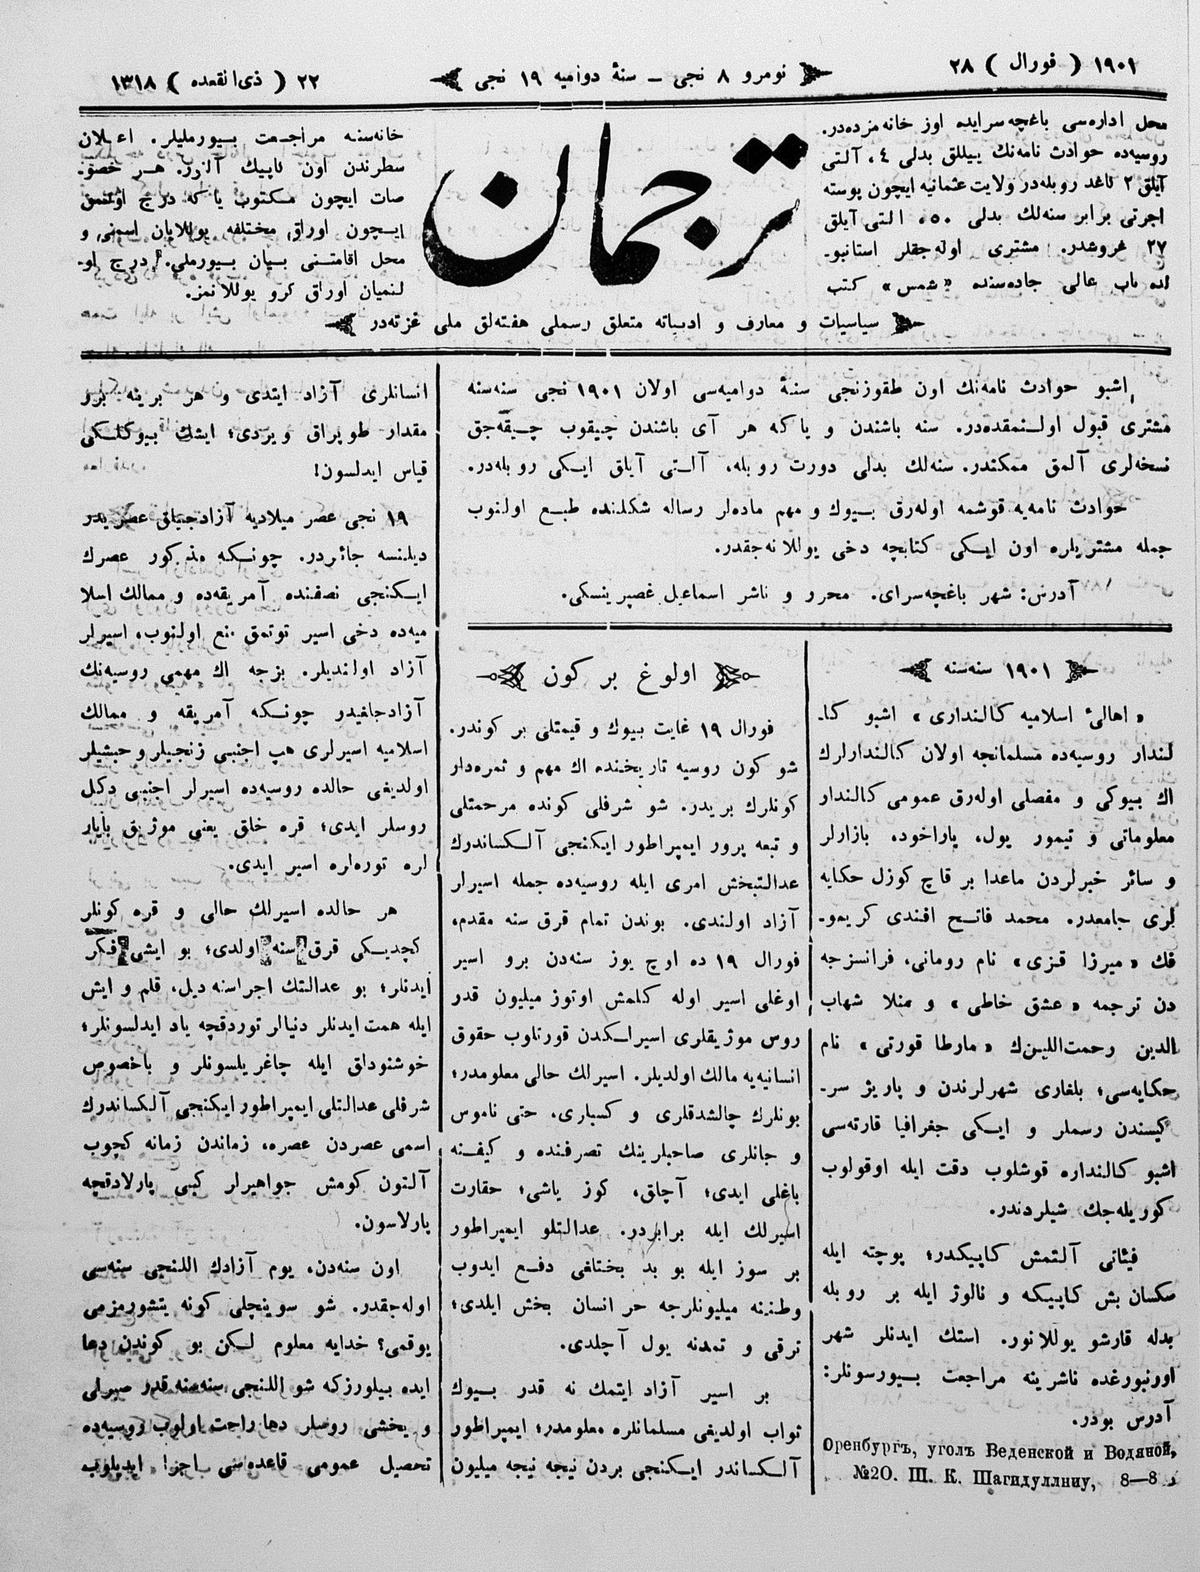 ١٩٠١ ( فورال ) ٢٨
نومرو ٨ نجی – سنهٔ دوامیه ١٩ نجی
٢٢ ( ذی‌القعده ) ١٣١٨
محل اداره‌سی باغچه‌سرایده اوز خانه‌مزده‌در.
روسیه‌ده حوادث نامه‌نك ییللق بدلی ٤، آلتی
آیلق ٢ كاغد روبله‌در ولایت عثمانیه ایچون پوسته
اجرتی برابر سنه‌لك بدلی ٥٠، التی آیلق
٢٧ غروشدر. مشتری اوله‌جقلر استانبو‌ـ
لده باب عالی جاده‌سنده «شمس» كتب
ترجمان
خانه‌سنه مراجعت بیورملیلر. اعلان
سطرندن اون كاپیك آلنور. هر خصو‌ـ
صات ایچون مكتوب یا كه درج اولنمق
ایچون اوراق مختلفه یوللایان اسمنی و
محل اقامتنی بیان بیورملی. درج او‌ـ
لنمیان اوراق كرو یوللانمز.
سیاسیات و معارف و ادبیاته متعلق رسملی هفته‌لق ملی غزته‌در
اشبو حوادث نامه‌نك اون طقوزنجی سنهٔ دوامیه‌سی اولان ١٩٠١ نجی سنه‌سنه
مشتری قبول اولنمقده‌در. سنه باشندن و یا كه هر آی باشندن چیقوب چیقه‌جق
نسخه‌لری آلمق ممكندر. سنه‌لك بدلی دورت روبله، آلتی آیلق ایكی روبله‌در.
حوادث نامه‌یه قوشمه اوله‌رق بیوك و مهم ماده‌لر رساله شكلنده طبع اولنوب
جمله مشتریلره اون ایكی كتابچه دخی یوللانه‌جقدر.
آدرس: شهر باغچه‌سرای. محرر و ناشر اسماعیل غصپرینسكی.
١٩٠١ سنه‌سنه
« اهالیٔ اسلامیه كالنداری » اشبو كا‌ـ
لندار روسیه‌ده مسلمانجه اولان كالندارلرك
اك بیوكی و مفصلی اوله‌رق عمومی كالندار
معلوماتی و تیمور یول، پاراخود، بازارلر
و سائر خبرلردن ماعدا بر قاچ كوزل حكایه
لری جامعدر. محمد فاتح افندی كریمو‌ـ
فك «میرزا قزی» نام رومانی، فرانسزجه
دن ترجمه «عشق خاطی» و منلا شهاب
الدین رحمت‌اللین‌ك «مارطا قورتی» نام
حكایه‌سی؛ بلغاری شهرلرندن و پاریژ سر‌ـ
كیسندن رسملر و ایكی جغرافیا قارته‌سی
اشبو كالنداره قوشلوب دقت ایله اوقولوب
كوریله‌جك شیلردندر.
فیئاتی آلتمش كاپیكدر؛ پوچته ایله
سكسان بش كاپیكه و نالوژ ایله بر روبله
بدله قارشو یوللانور. استك ایدنلر شهر
اورنبورغده ناشرینه مراجعت بیورسونلر:
آدرس بودر.
Оренбургъ, уголъ Веденской и Водяной,
№20. Ш. К. Шагидуллниу, 8—8
اولوغ بر كون
فورال ١٩ غایت بیوك و قیمتلی بر كوندر.
شو كون روسیه تاریخنده اك مهم و ثمره‌دار
كونلرك بریدر. شو شرفلی كونده مرحمتلی
و تبعه پرور ایمپراطور ایكنجی آلكساندرك
عدالتبخش امری ایله روسیه‌ده جمله اسیرلر
آزاد اولندی. بوندن تمام قرق سنه مقدم،
فورال ١٩ ده اوچ یوز سنه‌دن برو اسیر
اوغلی اسیر اوله كلمش اوتوز میلیون قدر
روس موژیقلری اسیرلكدن قورتلوب حقوق
انسانیه‌یه مالك اولدیلر. اسیرلك حالی معلومدر؛
بونلرك چالشدقلری و كسباری. حتی ناموس
و جانلری صاحبلرینك تصرفنده و كیفنه
باغلی ایدی؛ آچلق، كوز یاشی؛ حقارت
اسیرلك ایله برابردر. عدالتلو ایمپراطور
بر سوز ایله بو بد بختلقی دفع ایدوب
وطننه میلیونلرجه حر انسان بخش ایلدی؛
ترقی و تمدنه یول آچلدی.
بر اسیر آزاد ایتمك نه قدر بیوك
ثواب اولدیغی مسلمانلره معلومدر؛ ایمپراطور
آلكساندر ایكنجی بردن نیجه نیجه میلیون
انسانلری آزاد ایتدی و هر برینه برو
مقدار طوپراق ویردی؛ ایشك بیوكلكی
قیاس ایدلسون!
١٩ نجی عصر میلادیه آزادجیلق عصریدر
دیلنسه جائزدر. چونكه مذكور عصرك
ایكنجی نصفنده آمریقه‌ده و ممالك اسلا
میه‌ده دخی اسیر توتمق منع اولنوب، اسیرلر
آزاد اولندیلر. بزجه اك مهمی روسیه‌نك
آزادجلغیدر چونكه آمریقه و ممالك
اسلامیه اسیرلری هپ اجنبی زنجیلر و حبشیلر
اولدیغی حالده روسیه‌ده اسیرلر اجنبی دكل
روسلر ایدی؛ قره خلق یعنی موژیق بایار
لره توره‌لره اسیر ایدی.
هر حالده اسیرلك حالی و قره كونلر
كچدیكی قرق سنه اولدی؛ بو ایشی فكر
ایدنلر؛ بو عدالتك اجراسنه دیل، قلم و ایش
ایله همت ایدنلر دنیالر توردقچه یاد ایدلسونلر؛
خوشنودلق ایله چاغریلسونلر و باخصوص
شرفلی عدالتلی ایمپراطور ایكنجی آلكساندرك
اسمی عصردن عصره، زماندن زمانه كچوب
آلتون كومش جواهرلر كبی پارلادقچه
پارلاسون.
اون سنه‌دن، یوم آزادك اللنجی سنه‌سی
اوله‌جقدر. شو سوینچلی كونه یتشورمزمی
یوقمی؟ خدایه معلوم لكن بو كوندن دعا
ایده بیلورزكه شو اللنجی سنه‌سنه قدر صبرلی
و یخشی روسلر دها راحت اولوب روسیه‌ده
تحصیل عمومی قاعده‌سی اجرا ایدیلوب